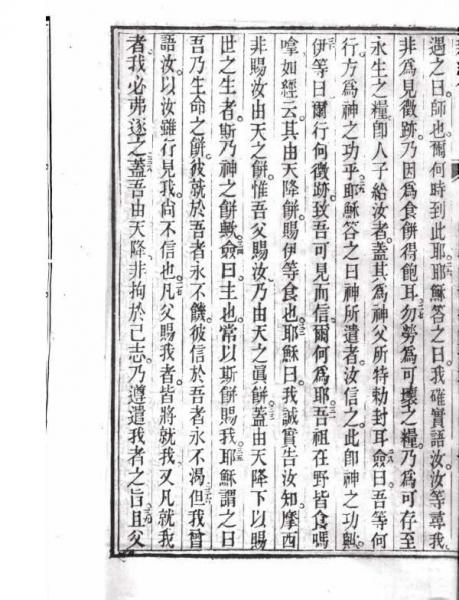 遇之曰師也爾何時到此耶耶穌答之曰我確實語汝汝等尋我
非爲見徵跡乃因爲食餅得飽耳勿勞爲可壞之糧乃爲可存至
永生之糧卽人子給汝者蓋其爲神父所特勅封耳僉曰吾等何
行方爲神之功乎耶穌答之曰神所遣者汝信之此卽神之功歟
伊等曰爾行何徵跡致吾可見而信爾何爲耶吾祖在野皆食嗎
嗱如經云其由天降餅賜伊等食也耶穌曰我誠實告汝知摩西
非賜汝由天之餅惟吾父賜汝乃由天之眞餅蓋由天降下以賜
世之生者斯乃神之餅歟僉曰主也常以斯餅賜我耶穌謂之曰
吾乃生命之餅彼就於吾者永不饑彼信於吾者永不渴但我曾
語汝以汝雖行見我尚不信也凡父賜我者皆將就我又凡就我
者我必弗逐之蓋吾由天降非拘於己志乃遵遣我者之旨且父